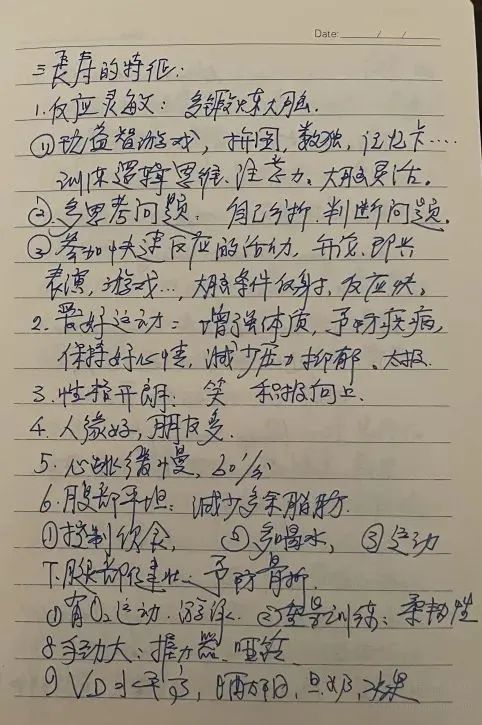 Date: / /
三 長寿的特征:
1. 反应灵敏: 多锻炼大脑.
① 功益智游戏, 拼图, 数独, 记忆卡……
训练逻辑思维、注意力、大脑灵活。
② 多思考问题: 自己分析.判断问题。
③ 参加快速反应的活动, 即兴
表演, 游戏…, 大脑条件反射, 反应快。
2. 爱好运动: 增强体质, 予防疾病,
保持好心情, 减少压力抑郁。太极.
3. 性格开朗: 笑 积极向上.
4. 人缘好, 朋友多.
5. 心跳缓慢, 60'/分
6. 腹部平坦: 减少多余脂肪.
①控制饮食, ②多喝水, ③运动
7. 腿部健壮: 予防骨折
①有O2运动. 游泳. ②力量训练: 柔韧性
8. 手劲大: 握力器. 哑铃
9 VD水平高, 晒太阳, 水果